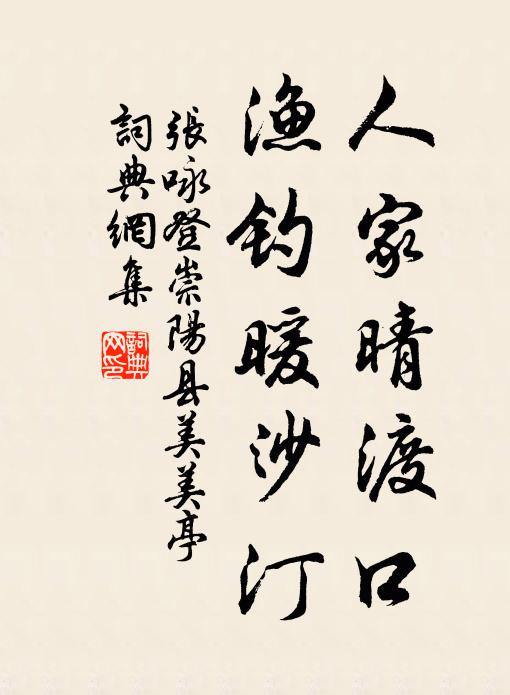 人家晴渡口
漁钓暖沙汀
張咏登崇陽县美美亭
詞典網集
詞典网印